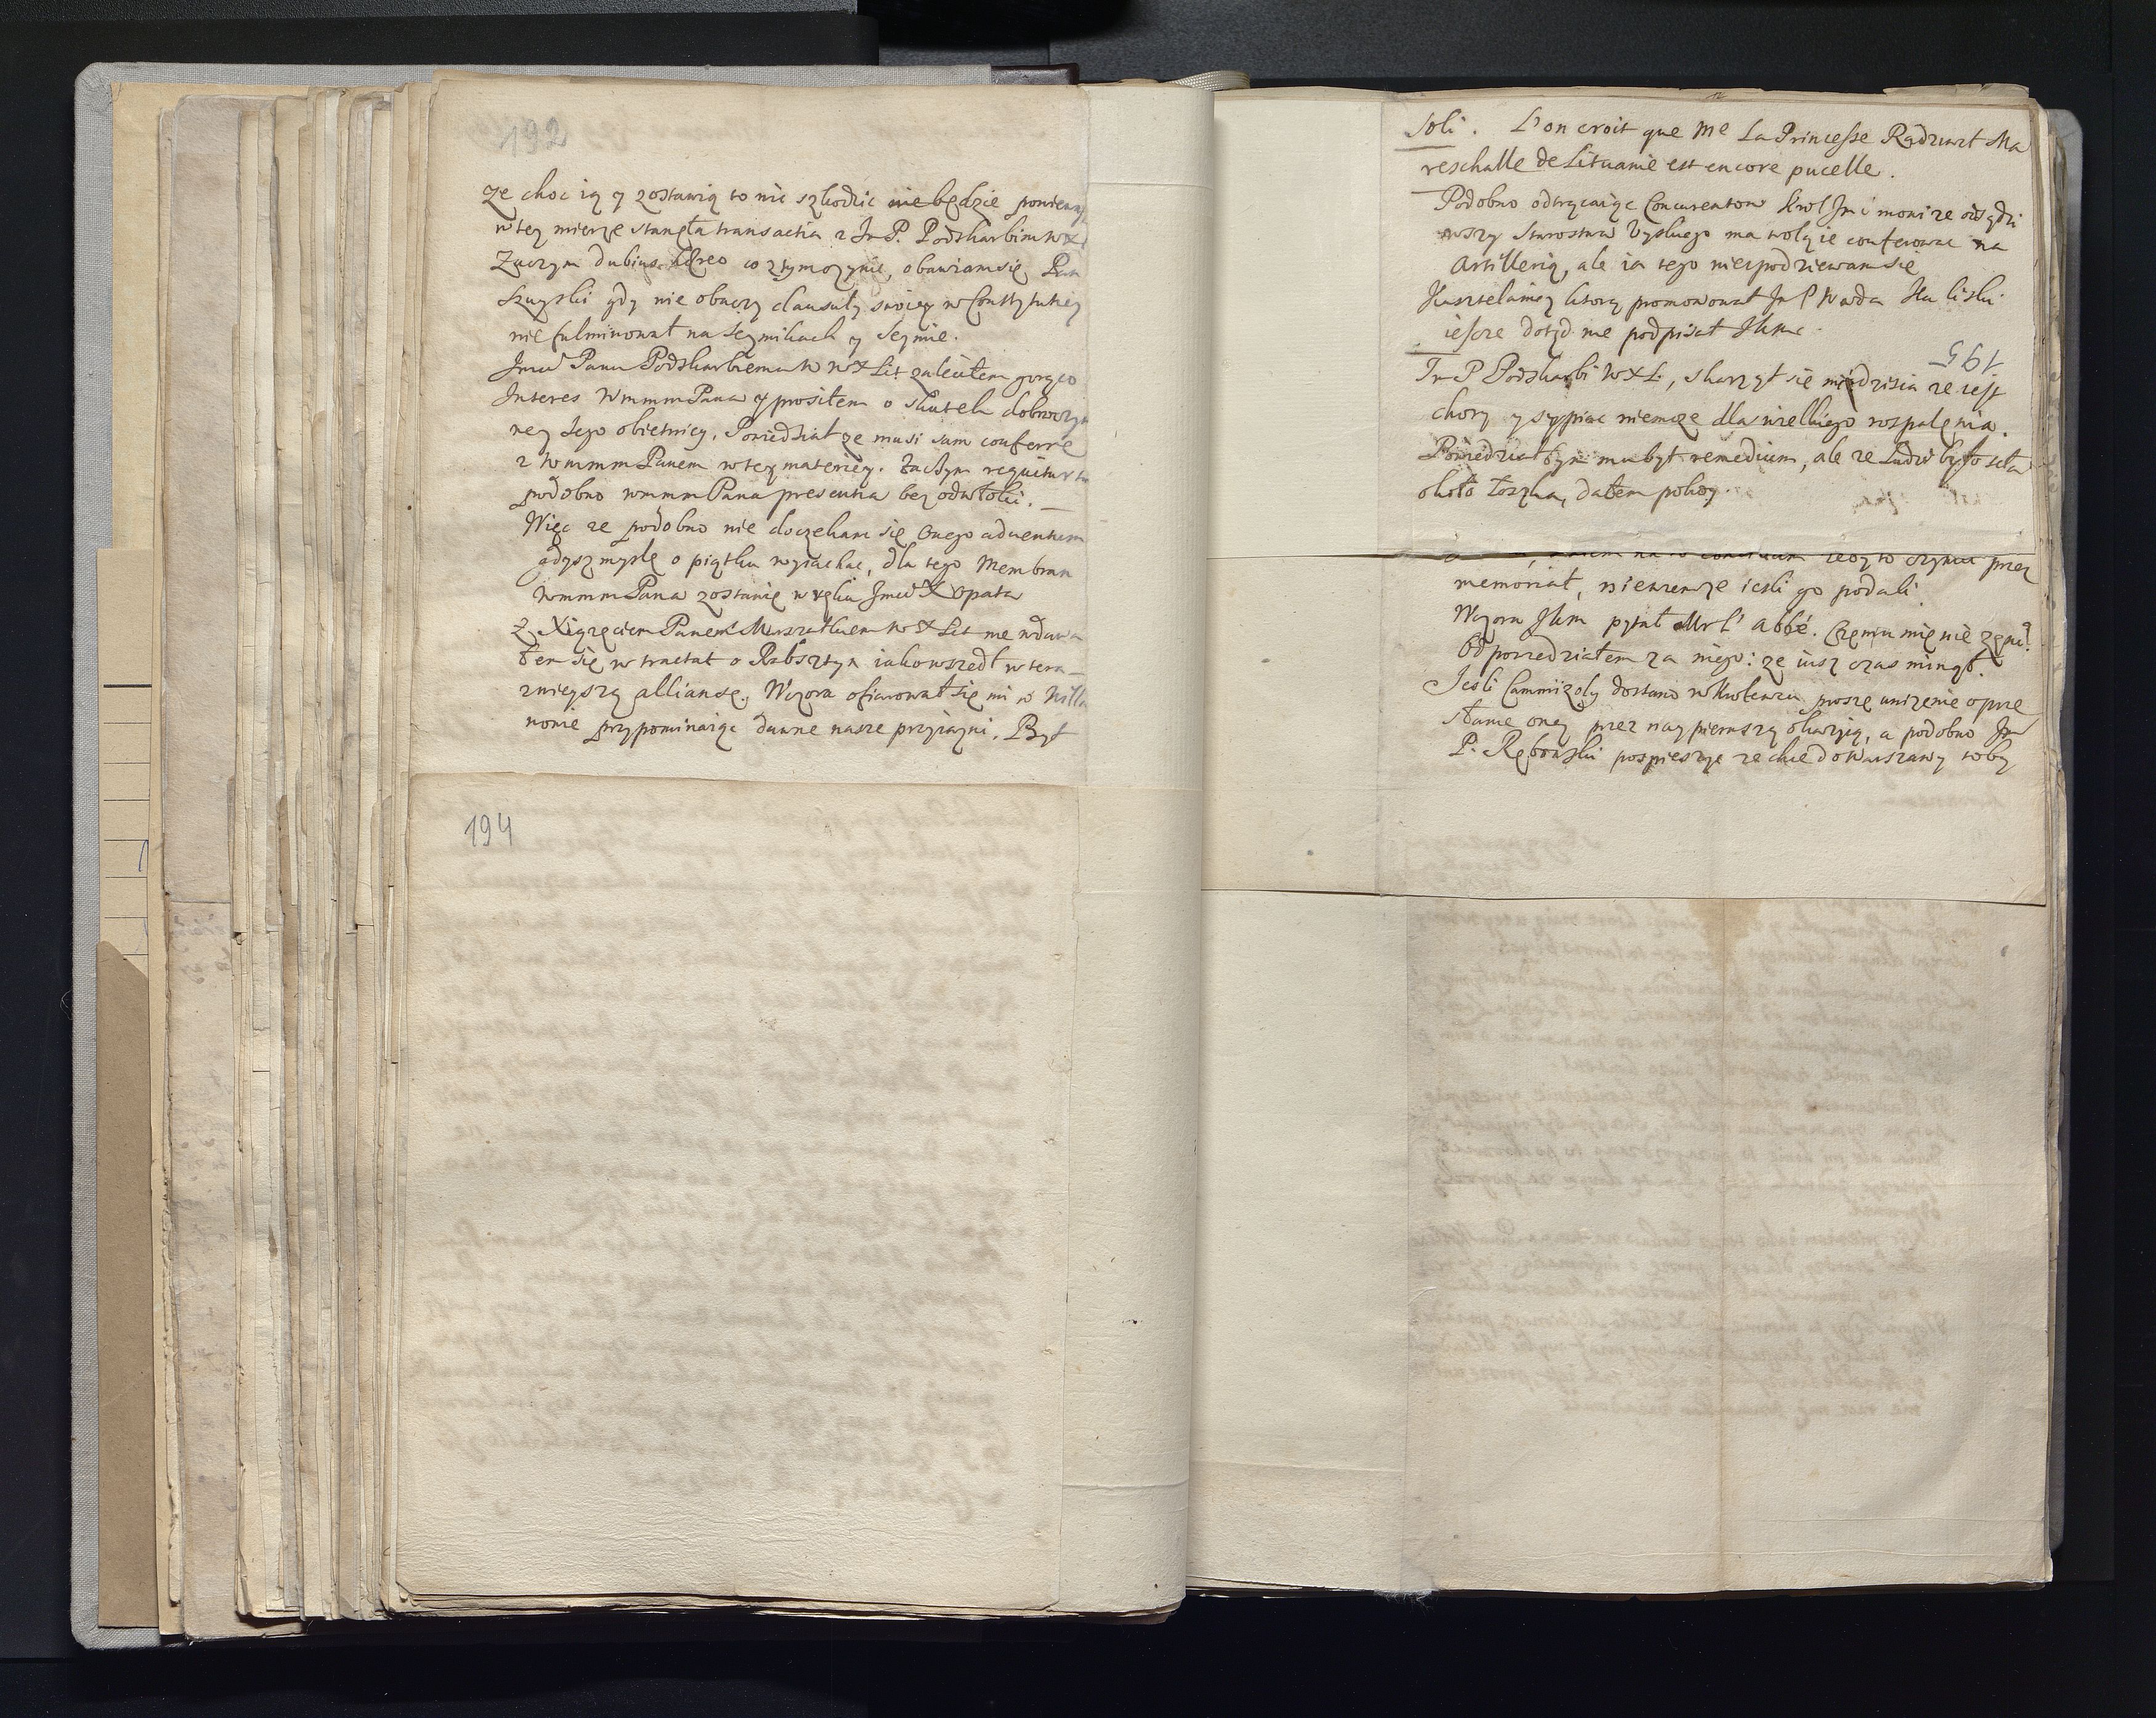 192
ze choc ią y zostawią to nie szkodzic nie będzie poniewaz
w tey mierze stanęła transactia z Jm P. Podskarbim WX
Zaczym dubius haereo co z tym czynic, obawiam się Pan
Szuyski gdy nie obaczy clausuly swoiey w Constytutiey
nie fulminował na Seymikach y Seymie.
Jmci Panu Podskarbiemu W WX Lit zaleciłem goraco
Interes WmmmPana y prosiłem o skutek dobroczyn
ney Jego obietnicy. Powiedział ze musi sam conferre
z WmmmPanem w tey materiey. Zaczym requiritur
podobno wmmmPana presentia bez odwłoki.
Więc ze podobno nie doczekam się onego adventum
gdysz myslę o piątku wyiachac, dla tego Membran
WmmmPana zostanię w ręku Jmci X Opata
Z Xiązęciem Panem Marszałkiem W X Lit nie wdawa
łem się w tractat o Rabsztyn iako wszedł w tera
znieyszą alliansę. Wczora ofiarował się mi w Willa
nowie przypominaiąc dawne nasze przyiazni. Był
194
soli. L'on croit que Me La Princesse Radziwił Ma
reschalle de Lituanie est encore pucelle.
Podobno odtrącaiąc Concurentow Krol Jmć mowi ze osądzi
wszy Starostwa Uyskiego ma wolą ie conferowac na
Artillerią, ale ia tego nie spodziewam się
Kasztelaniey ktorą promowował Jm P Woda Kaliski
iescze dotąd nie podpisał JKm.
195
Jm P Podskarbi WXL, skarzył się mi dzisia ze iest
chory y sypiac niemoze dla wielkiego rospalęnia.
Powiedział bym mu był remedium, ale ze Ludzi było siła
około łoszka, dałem pokoy.
czynic przez
memoriał, niewiem ze iesli go podali.
Wczora JKm pytał Mr l'Abbé. Czemu mię nie zęni?
Odpowiedziałem za niego: ze iusz czas minął.
Jesli Cammizoly dostano w Krolewcu proszę unizenie o prze
słanie oney przez nay pierwszą okazyią, a podobno Jm
P. Rębowski pospieszy ze chce do Warszawy toby